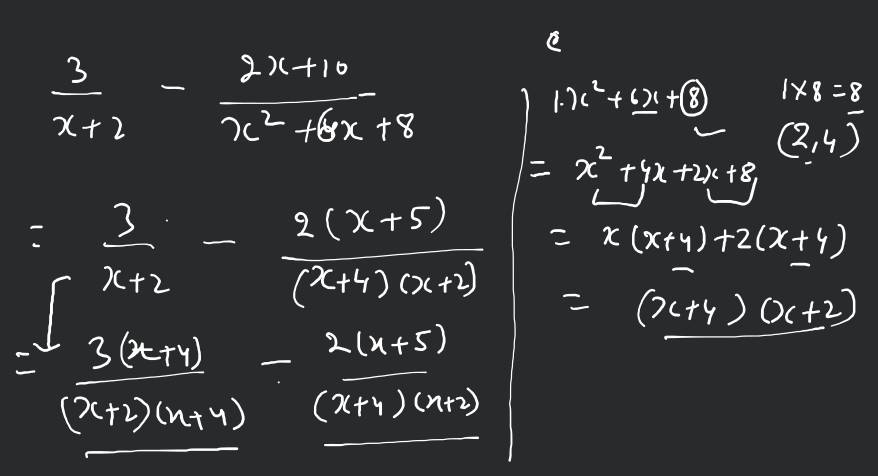 3/(x+2) - (2x+10)/(x² + 6x + 8)
= 3/(x+2) - 2(x+5)/((x+4)(x+2))
= 3(x+4)/((x+2)(x+4)) - 2(x+5)/((x+4)(x+2))
1·x² + 6x + 8
1×8 = 8
(2,4)
= x² + 4x + 2x + 8
= x(x+4) + 2(x+4)
= (x+4)(x+2)